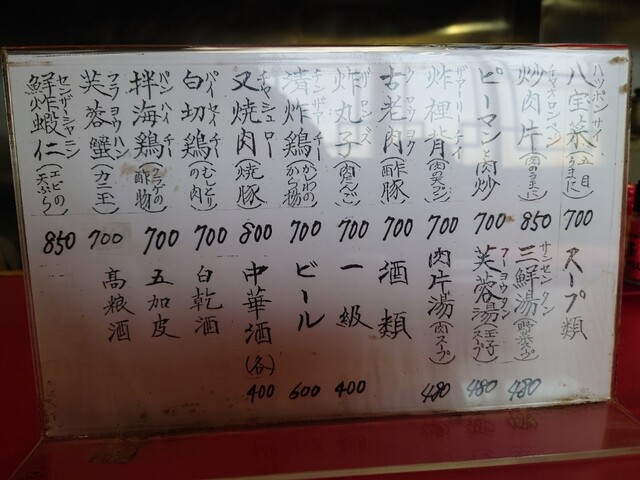 八宝菜(五目うまに) ハッポーサイ 700
炒肉片(肉のうまに) 850
ピーマンと肉炒 700
炸裡背(肉の天プラ) 700
古老肉(酢豚) 700
炸丸子(肉だんご) 700
清炸鶏(かしわのから揚) 700
叉焼肉(焼豚) チャシュロー 800
白切鶏(むしとりの肉) パイセイチー 700
拌海鶏(クラゲの酢物) バンハイチー 700
芙蓉蟹(カニ玉) フヨウハン 700
鮮炸蝦仁(エビの天ぷら) センザーシャーニン 850
スープ類
三鮮湯(野菜スープ) サンセンタン 480
芙蓉湯(玉子スープ) フヨウタン 480
肉片湯(肉スープ) 480
酒類
一級 400
ビール 600
中華酒(各) 400
白乾酒
五加皮
高粮酒